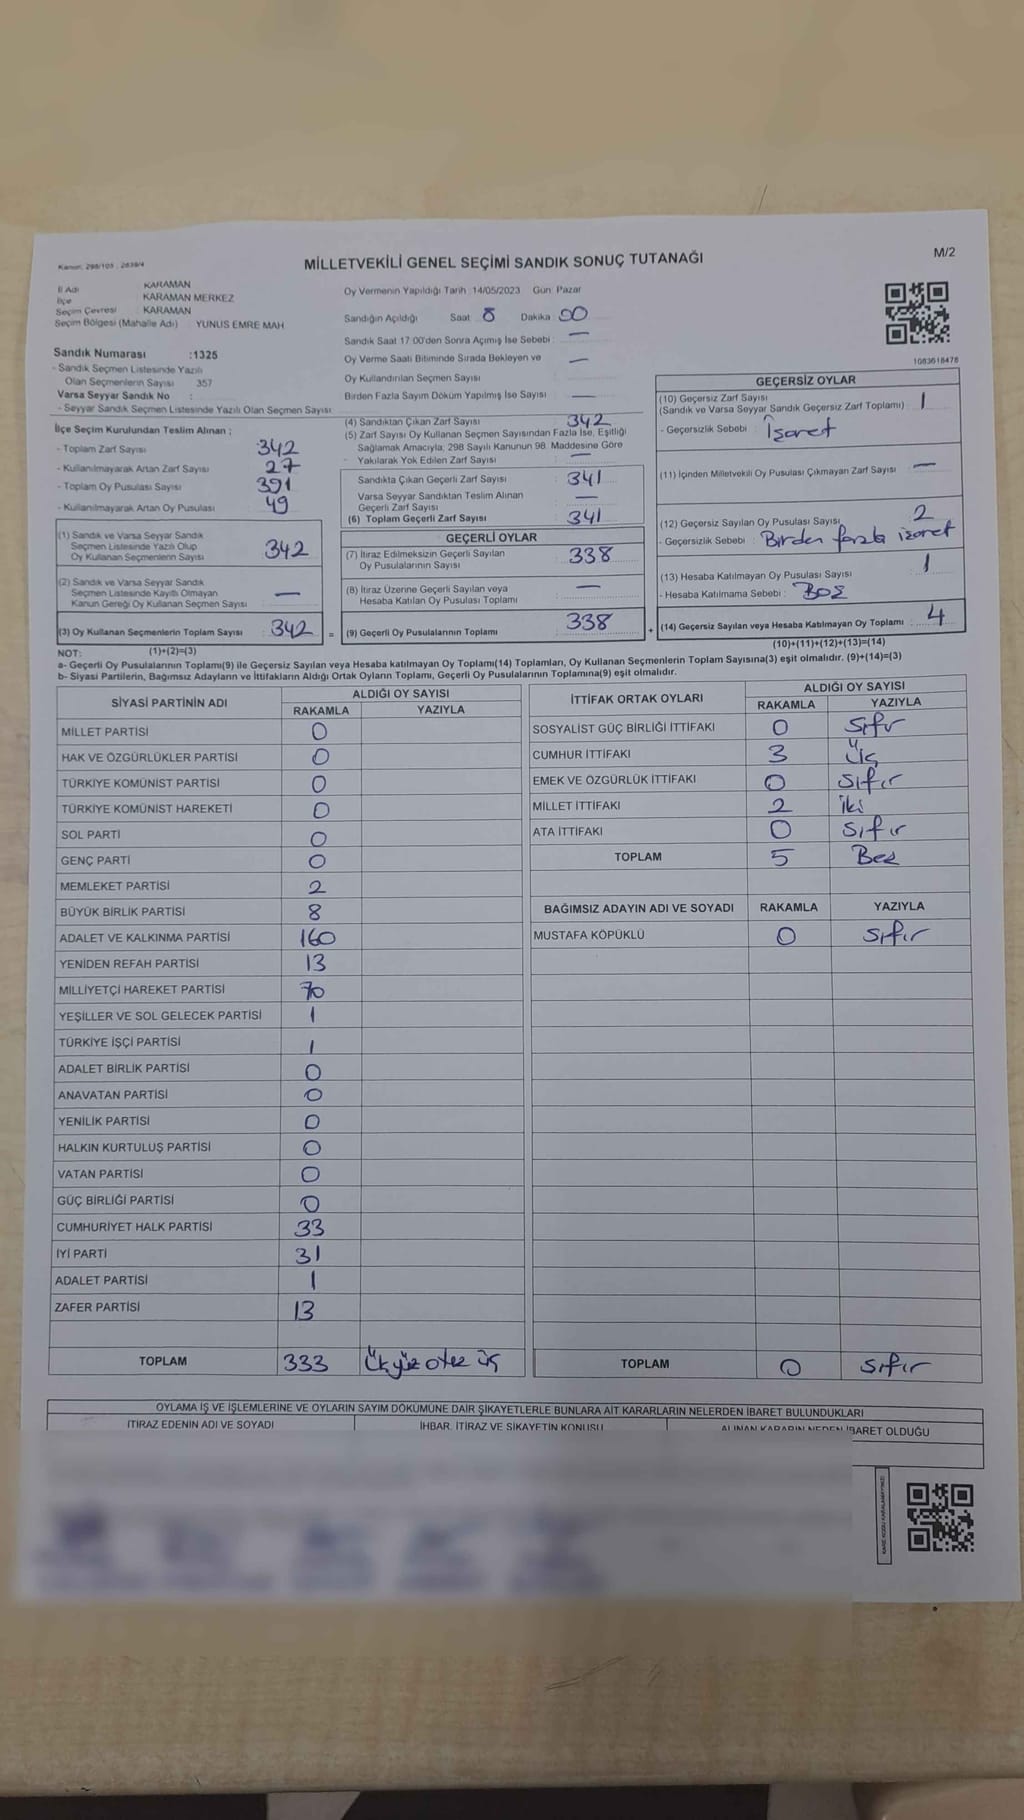 Kanun: 298/105 , 2839/4
MİLLETVEKİLİ GENEL SEÇİMİ SANDIK SONUÇ TUTANAĞI
M/2
İl Adı : KARAMAN
İlçe : KARAMAN MERKEZ
Seçim Çevresi : KARAMAN
Seçim Bölgesi (Mahalle Adı) : YUNUS EMRE MAH
Sandık Numarası :1325
- Sandık Seçmen Listesinde Yazılı
Olan Seçmenlerin Sayısı : 357
Varsa Seyyar Sandık No :
- Seyyar Sandık Seçmen Listesinde Yazılı Olan Seçmen Sayısı :
Oy Vermenin Yapıldığı Tarih :14/05/2023 Gün: Pazar
Sandığın Açıldığı Saat 8 Dakika 00
Sandık Saat 17:00'den Sonra Açımış İse Sebebi : —
Oy Verme Saati Bitiminde Sırada Bekleyen ve —
Oy Kullandırılan Seçmen Sayısı
Birden Fazla Sayım Döküm Yapılmış İse Sayısı : —
1083618478
İlçe Seçim Kurulundan Teslim Alınan ;
- Toplam Zarf Sayısı : 342
- Kullanılmayarak Artan Zarf Sayısı : 27
- Toplam Oy Pusulası Sayısı : 391
- Kullanılmayarak Artan Oy Pusulası : 49
(1) Sandık ve Varsa Seyyar Sandık
Seçmen Listesinde Yazılı Olup
Oy Kullanan Seçmenlerin Sayısı : 342
(2) Sandık ve Varsa Seyyar Sandık
Seçmen Listesinde Kayıtlı Olmayan
Kanun Gereği Oy Kullanan Seçmen Sayısı : —
(3) Oy Kullanan Seçmenlerin Toplam Sayısı : 342 =
(4) Sandıktan Çıkan Zarf Sayısı : 342
(5) Zarf Sayısı Oy Kullanan Seçmen Sayısından Fazla İse, Eşitliği
Sağlamak Amacıyla; 298 Sayılı Kanunun 98. Maddesine Göre
Yakılarak Yok Edilen Zarf Sayısı : —
Sandıkta Çıkan Geçerli Zarf Sayısı : 341
Varsa Seyyar Sandıktan Teslim Alınan
Geçerli Zarf Sayısı : —
(6) Toplam Geçerli Zarf Sayısı : 341
GEÇERLİ OYLAR
(7) İtiraz Edilmeksizin Geçerli Sayılan
Oy Pusulalarının Sayısı : 338
(8) İtiraz Üzerine Geçerli Sayılan veya
Hesaba Katılan Oy Pusulası Toplamı : —
(9) Geçerli Oy Pusulalarının Toplamı : 338 +
GEÇERSİZ OYLAR
(10) Geçersiz Zarf Sayısı
(Sandık ve Varsa Seyyar Sandık Geçersiz Zarf Toplamı) : 1
- Geçersizlik Sebebi : İşaret
(11) İçinden Milletvekili Oy Pusulası Çıkmayan Zarf Sayısı : —
(12) Geçersiz Sayılan Oy Pusulası Sayısı : 2
- Geçersizlik Sebebi : Birden fazla işaret
(13) Hesaba Katılmayan Oy Pusulası Sayısı : 1
- Hesaba Katılmama Sebebi : BOŞ
(14) Geçersiz Sayılan veya Hesaba Katılmayan Oy Toplamı : 4
NOT: (1)+(2)=(3)
(10)+(11)+(12)+(13)=(14)
a- Geçerli Oy Pusulalarının Toplamı(9) ile Geçersiz Sayılan veya Hesaba katılmayan Oy Toplamı(14) Toplamları, Oy Kullanan Seçmenlerin Toplam Sayısına(3) eşit olmalıdır. (9)+(14)=(3)
b- Siyasi Partilerin, Bağımsız Adayların ve İttifakların Aldığı Ortak Oyların Toplamı, Geçerli Oy Pusulalarının Toplamına(9) eşit olmalıdır.
SİYASİ PARTİNİN ADI ALDIĞI OY SAYISI
RAKAMLA YAZIYLA
MİLLET PARTİSİ 0
HAK VE ÖZGÜRLÜKLER PARTİSİ 0
TÜRKİYE KOMÜNİST PARTİSİ 0
TÜRKİYE KOMÜNİST HAREKETİ 0
SOL PARTİ 0
GENÇ PARTİ 0
MEMLEKET PARTİSİ 2
BÜYÜK BİRLİK PARTİSİ 8
ADALET VE KALKINMA PARTİSİ 160
YENİDEN REFAH PARTİSİ 13
MİLLİYETÇİ HAREKET PARTİSİ 70
YEŞİLLER VE SOL GELECEK PARTİSİ 1
TÜRKİYE İŞÇİ PARTİSİ 1
ADALET BİRLİK PARTİSİ 0
ANAVATAN PARTİSİ 0
YENİLİK PARTİSİ 0
HALKIN KURTULUŞ PARTİSİ 0
VATAN PARTİSİ 0
GÜÇ BİRLİĞİ PARTİSİ 0
CUMHURİYET HALK PARTİSİ 33
İYİ PARTİ 31
ADALET PARTİSİ 1
ZAFER PARTİSİ 13
TOPLAM 333 Üçyüz otuz üç
İTTİFAK ORTAK OYLARI ALDIĞI OY SAYISI
RAKAMLA YAZIYLA
SOSYALİST GÜÇ BİRLİĞİ İTTİFAKI 0 Sıfır
CUMHUR İTTİFAKI 3 Üç
EMEK VE ÖZGÜRLÜK İTTİFAKI 0 Sıfır
MİLLET İTTİFAKI 2 İki
ATA İTTİFAKI 0 Sıfır
TOPLAM 5 Beş
BAĞIMSIZ ADAYIN ADI VE SOYADI RAKAMLA YAZIYLA
MUSTAFA KÖPÜKLÜ 0 Sıfır
TOPLAM 0 Sıfır
OYLAMA İŞ VE İŞLEMLERİNE VE OYLARIN SAYIM DÖKÜMÜNE DAİR ŞİKAYETLERLE BUNLARA AİT KARARLARIN NELERDEN İBARET BULUNDUKLARI
İTİRAZ EDENİN ADI VE SOYADI İHBAR, İTİRAZ VE ŞİKAYETİN KONUSU ALINAN KARARIN NEDEN İBARET OLDUĞU